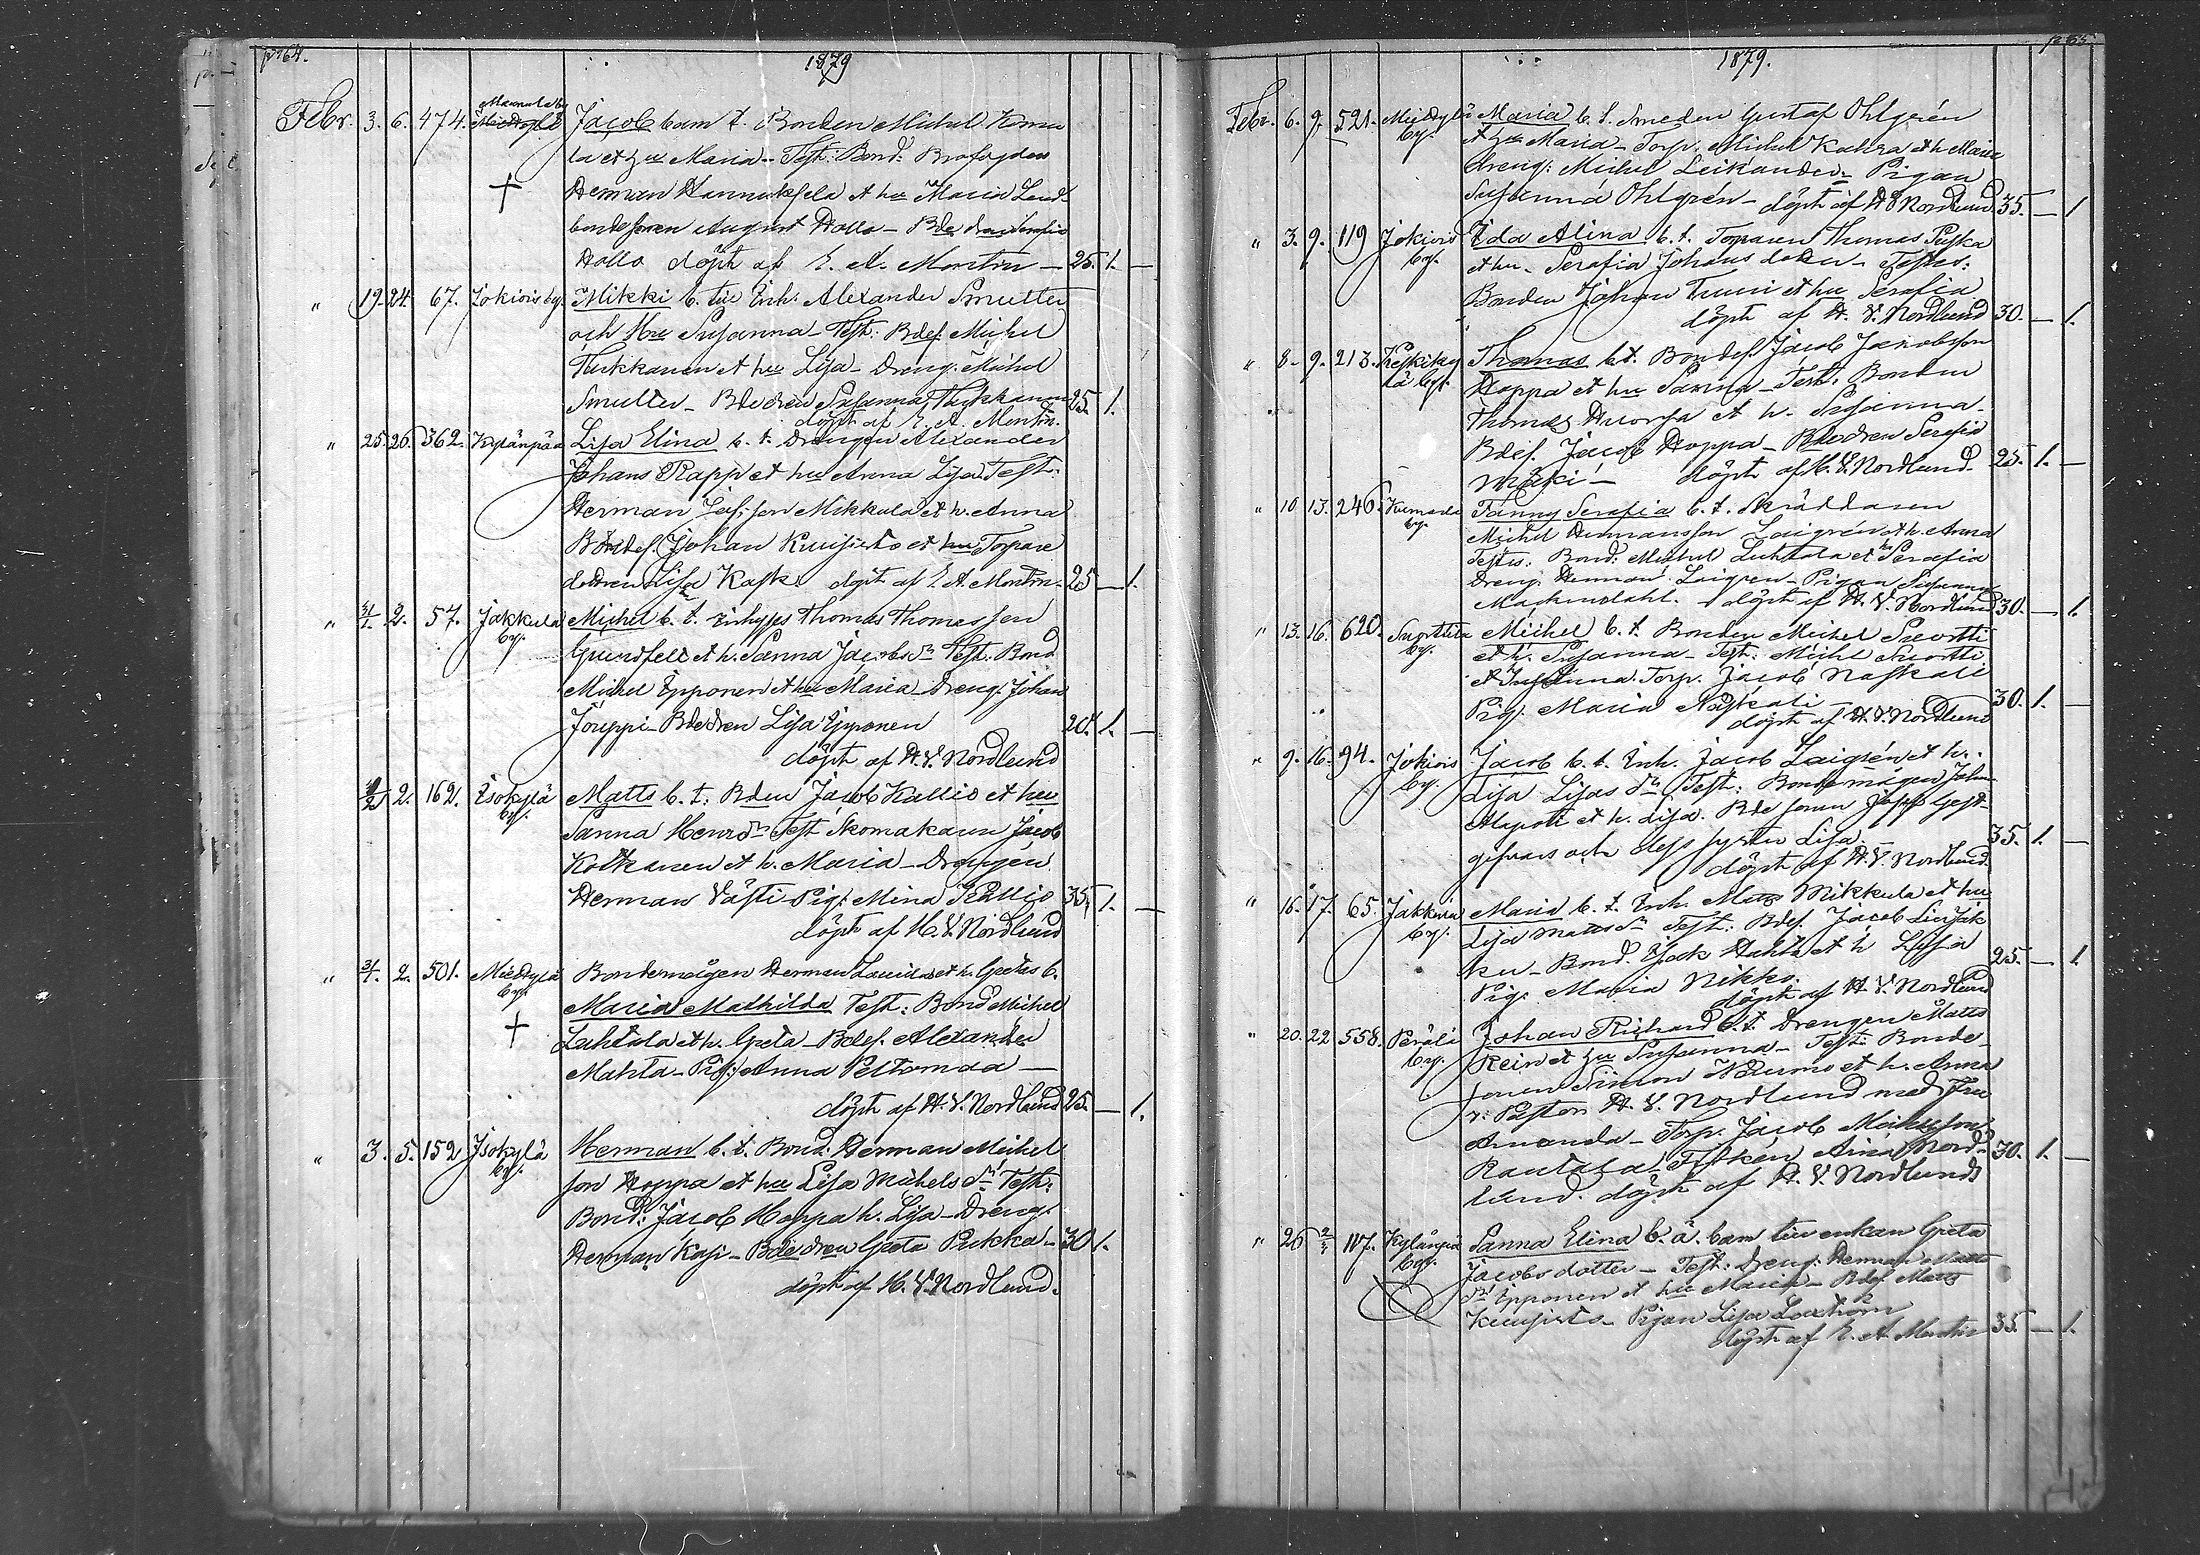 p. 64.
1879
Febr. 3. 6. 474. Mannala by Miedkylä Jacob barn t. Bonden Michel
la et hu Maria - Test: Bond: Brofogden
Herman Hannuksela et hu Maria Land-
bondesonen August Hollo - Bde dren Serafia
Hollo döpt af E. A. Montin - 25. 1. -
" 19. 24. 67. Jokioisby. Mikki b. till Inh: Alexander Smutter
och Hu Susanna - Test: Bdes. Michel
Tiukkanen et hu Lisa - Dreng: Michel
Smutter - Bdedren Susanna Tiukkanen 25. 1.
döpt af E. A. Montin.
" 25. 26. 362. Kylänpää Lisa Elina b. t. Drengen Alexander
Johans Rapp et hu Anna Lisa Test:
Herman Jafs: son Mikkula et h. Anna
Bondes. Johan Kuusisto et hu Torpare
dedren Lisa Kask döpt af E. A. Montin. 25 - 1.
" 31/1. 2. 57. Jakkula by. Michel b. t. Inhyses Thomas Thomasson
Grundfelt et h. Sanna Jacobs dr Test: Bond
Michel Epponen et hu Maria - Dreng. Johan
Jouppi - Bdedren Lisa Epponen 20. 1. -
döpt af H. V. Nordlund
1/2 2. 162. Isokylä by. Matts b. t. Bden Jacob Kallio et hu
Sanna Henr dr Test Skomakaren Jacob
Kotkanen et h. Maria - Drengen
Herman Västi - Pig: Mina Kallio 35. 1. -
döpt af H. V. Nordlund
" 31/1. 2. 501. Miedkylä by. Bondemågen Herman Lauila et h. Gretas b.
Maria Mathilda Test: Bond Michel
Luhtala et h. Greta - Bdes. Alexander
Mahta - Pig: Anna Peltomaa -
döpt af H. V. Nordlund 25. - 1.
" 3. 5. 152 Isokylä by. Herman b. t. Bond: Herman Michel
son Hoppa et hu Lisa Michels dr Test:
Bond: Jacob Hoppa h. Lisa - Dreng.
Herman Kasi - Bdedren Greta Pukka - 30 1.
döpt af H. V. Nordlund.
p. 65.
1879.
Febr. 6. 9. 521. Miedkylä by. Maria b. t. Smeden Gustaf Ohlgrén
et hu Maria - Torp. Michel Kahra et h. Maria
dreng: Michel Leikander - Pigan
Susanna Ohlgrén - döpt af H V Nordlund 35. - 1.
" 3. 9. 119 Jokiois by. Ida Alina b. t. Torparen Thomas Puska
et hu - Serafia Johans doter - Testes:
Bonden Johan Truui et hu Serafia
döpt af H. V. Nordlund 30. - 1.
" 8 - 9. 213. Keskiky lä by. Thomas b. t. Bondes. Jacob Jacobsson
Hoppa et hu Sanna - Test. Bonden
Thomas Huorsa et h. Susanna -
Bdes. Jacob Hoppa - Bdedren Serafia
Mäki - döpt af H. V. Nordlund 25. 1. -
" 10 13. 246. by. Fanny Serafia b. t. Skräddaren
Michel Hermansson Laigrén et h. Anna
Testes. Bond: Michel Luhtala et h Serafia
Dreng. Herman Laigren - Pigan Susanna
döpt af H. V. Nordlund 30. - 1.
" 13. 16. 620. Suorttila by. Michel b. t. Bonden Michel Suortti
et h. Susanna - Test: Michl Suortti
et Susanna. Torp. Jacob Naskali
Pig. Maria Naskali - 30. 1. -
döpt af H. V. Nordlund
" 9. 16. 94. Jokiois by. Jacob b. t. Inh. Jacob Laigrén et h.
Lisa Lisas dr Test: Bondemågen Johan
Alapoti et h. Lisa. Bde sonen Josef Gest-
gifvars och dess syster Lisa - 35. 1. -
döpt af H. V. Nordlund.
" 15. 17. 65. Jakkula by. Maria b. t. Inh. Matts Mikkula et hu
Lisa Matts dr Test: Bdes. Jacob
- Bond. Isak Hahto et h Lisa 25. - 1.
Pig: Maria Nikko.
döpt af H. V. Nordlund
" 20. 22 558. Peräli by. Johan Richard b. t. Drengen Matts
Rein et hu Susanna - Test: Bonde-
sonen Simon et h. Anna
v: Pastor H. V. Nordlund med Fru
Amanda - Torp. Jacob
Rautala - Fröken Aina Nord- 30. 1. -
lund. döpt af H. V. Nordlund
" 26 2/3 117. Kylänpää by. Sanna Elina b. ä. barn till enkan Greta
Jacobs dotter - Test: Dreng: Herman Matts
Epponen et hu Maria - Bdes. Matts
Kuusisto - Pigan Lisa Laxström
döpt af E. A. Montin 35. - 1.